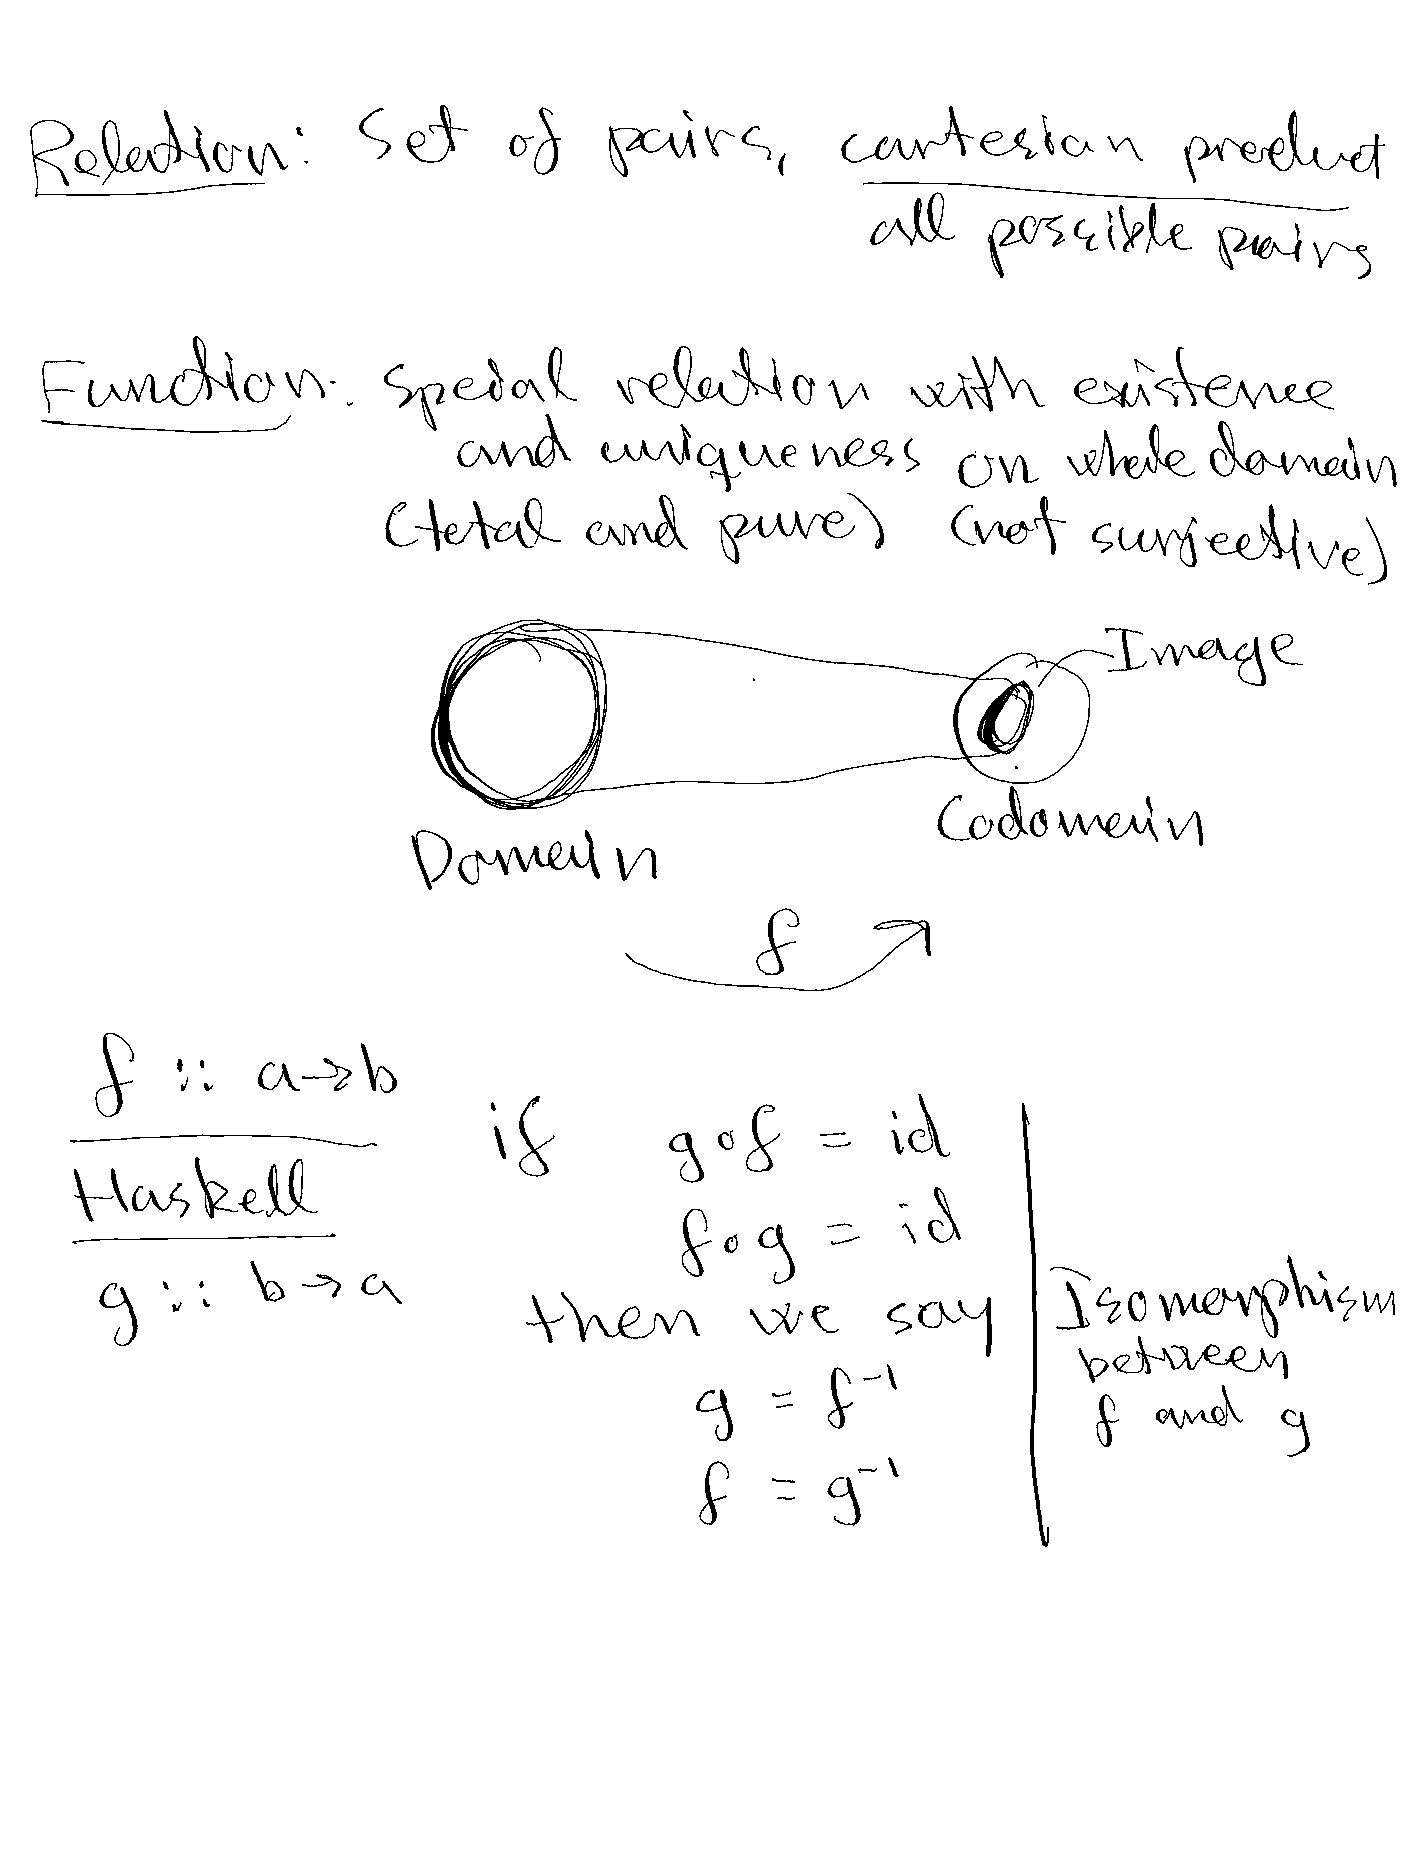 Relation: Set of pairs, cartesian product
all possible pairs
Function: Special relation with existence
and uniqueness on whole domain
(total and pure) (not surjective)
Image
Domain
Codomain
f
f :: a→b
Haskell
g :: b→a
if g∘f = id
f∘g = id
then we say
g = f⁻¹
f = g⁻¹
Isomorphism
between
f and g